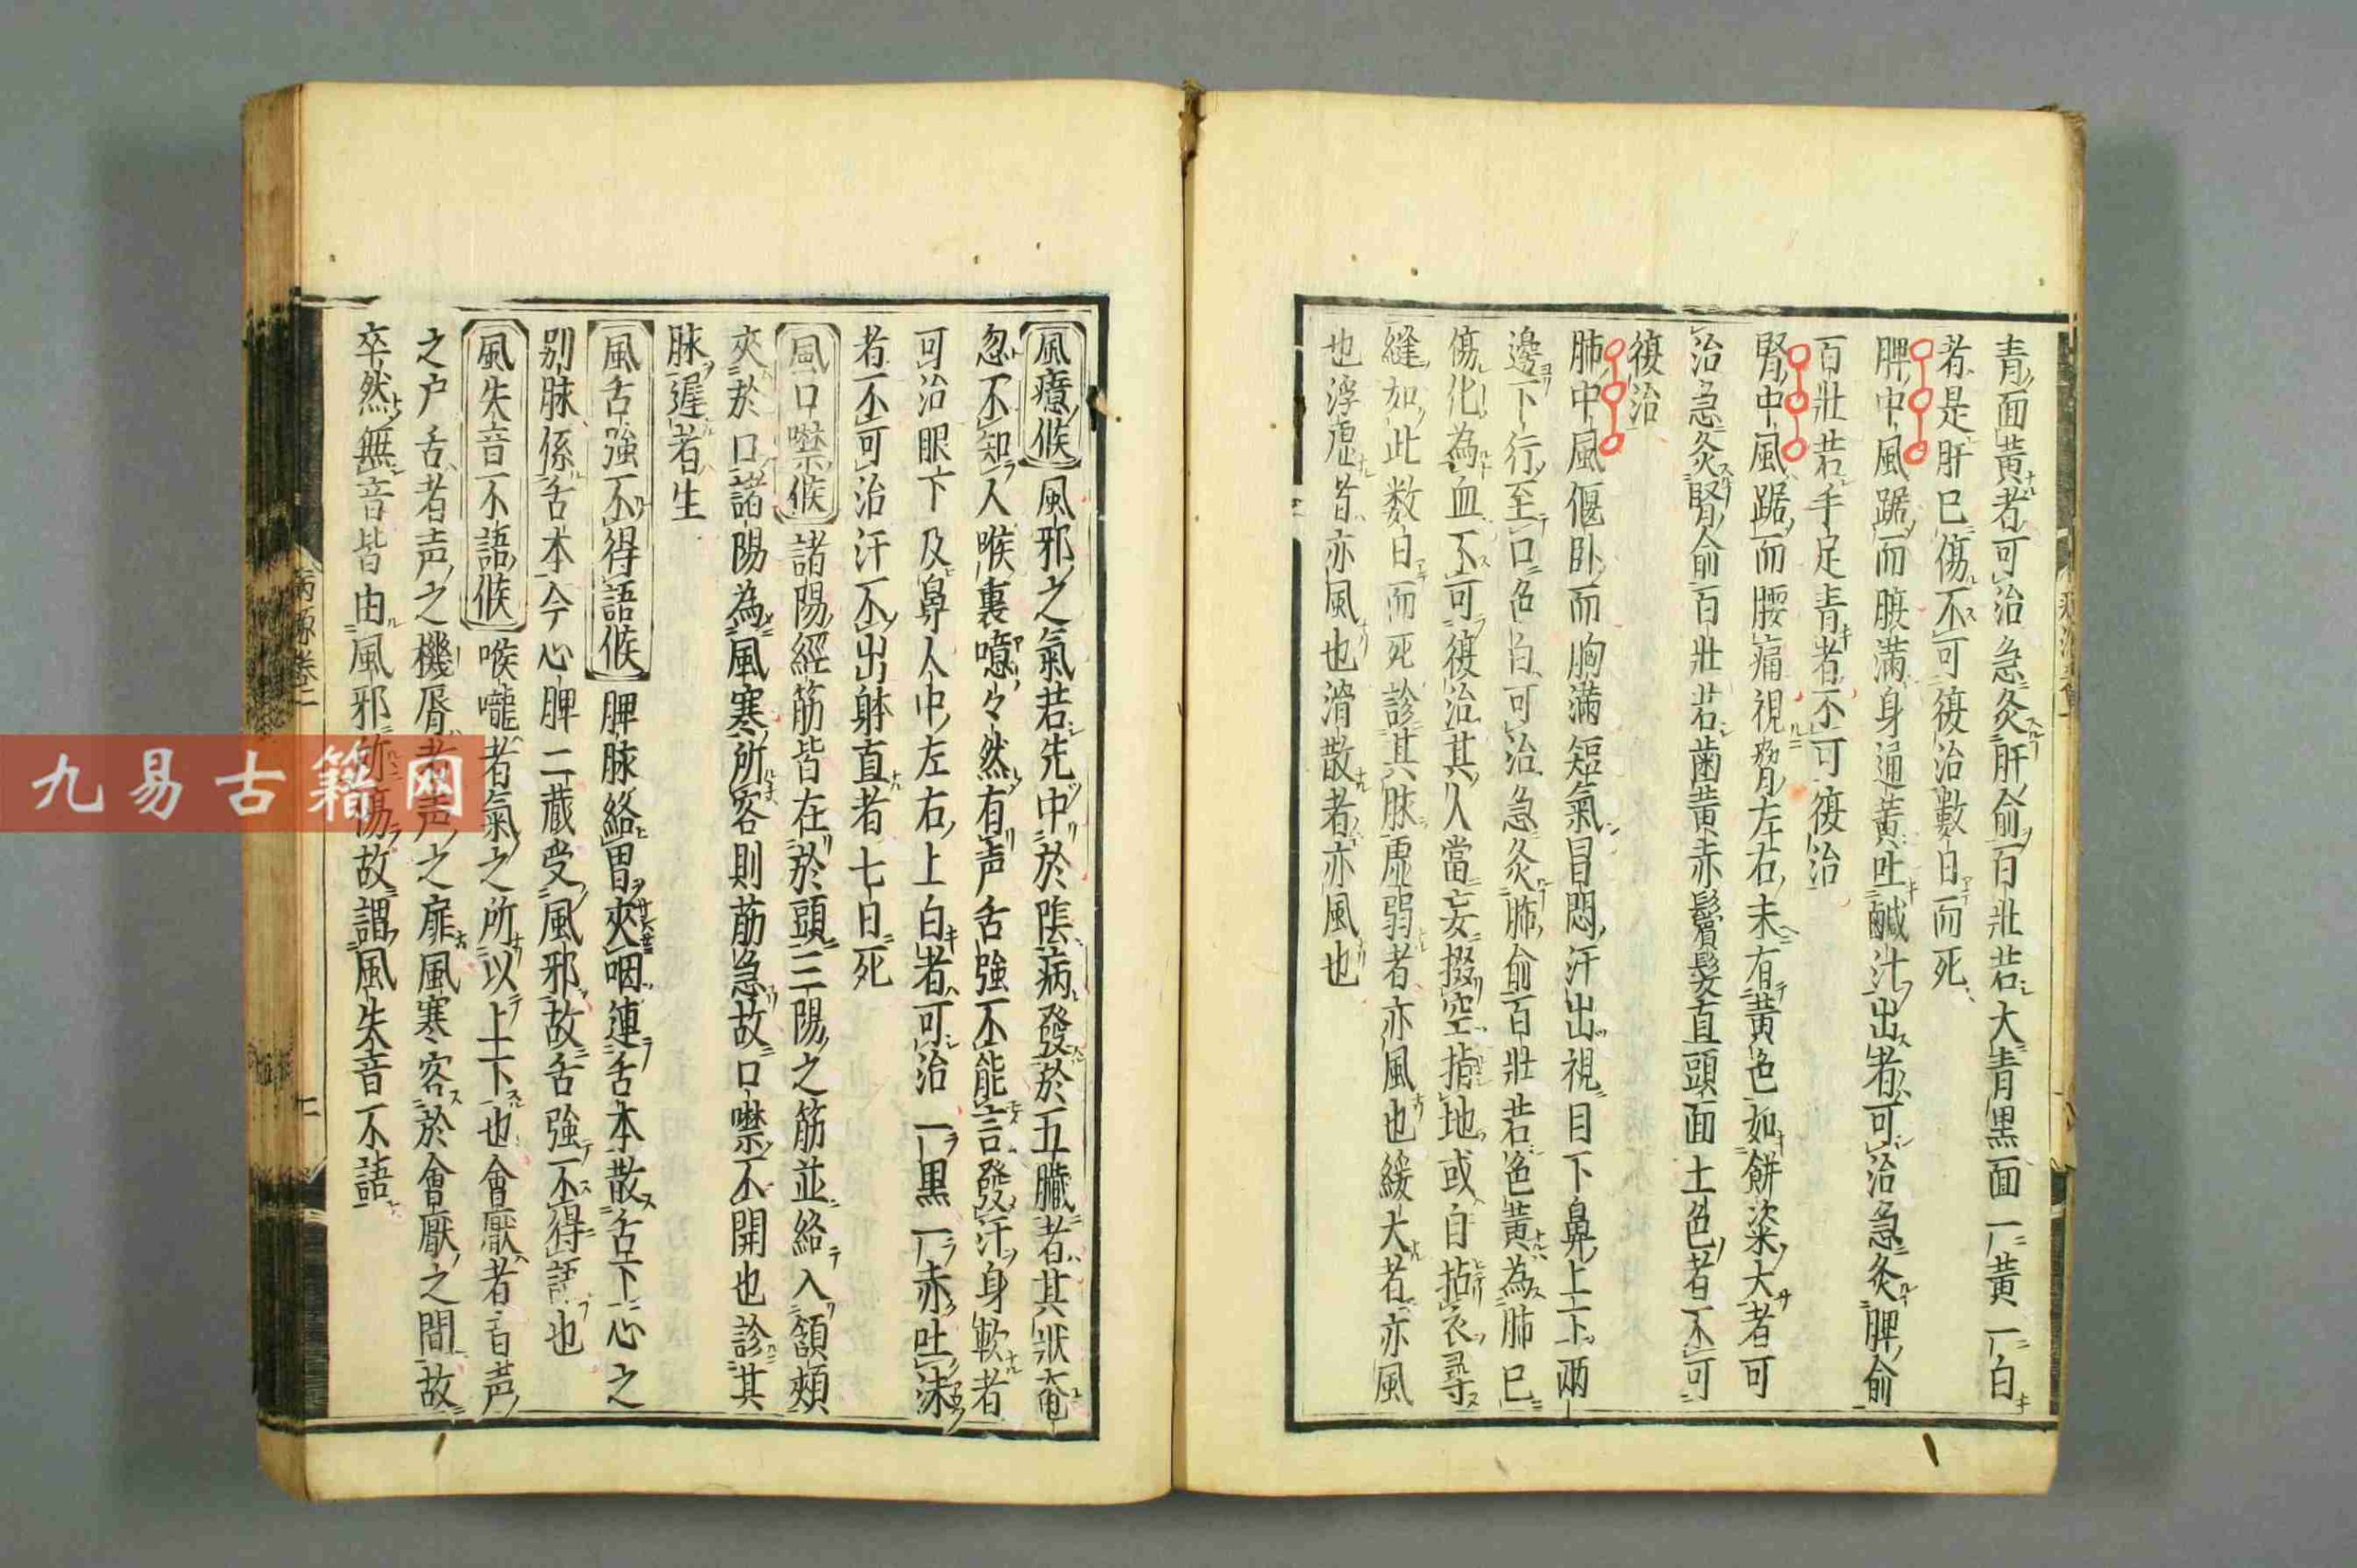 青面黄者可治急灸肝俞百壯若大青黒面一黄一白
者是肝已傷不可復治數日而死
脾中風踞而腹滿身通黄吐鹹汁出者可治急灸脾俞
百壯若手足青者不可復治
腎中風踞而腰痛視脅左右未有黄色如餅粢大者可
治急灸腎俞百壯若歯黄赤鬢髪直頭面土色者不可
復治
肺中風偃卧而胸満短氣冒悶汗出視目下鼻上下兩
邊下行至口色白可治急灸肺俞百壯若色黄為肺已
傷化為血不可復治其人當妄掇空指地或自拈衣尋
縫如此数日而死診其脉虚弱者亦風也緩大者亦風
也浮虚者亦風也滑散者亦風也
風癔候 風邪之氣若先中於陰病發於五臓者其狀奄
忽不知人喉裏噫々然有声舌強不能言發汗身軟者
可治眼下及鼻人中左右上白者可治一黒一赤吐沫
者不可治汗不出躰直者七日死
風口噤候 諸陽經筋皆在於頭三陽之筋並絡入頷頰
夾於口諸陽為風寒所客則筋急故口噤不開也診其
脉遲者生
風舌強不得語候 脾脉絡胃夾咽連舌本散舌下心之
别脉係舌本今心脾二蔵受風邪故舌強不得語也
風失音不語候 喉嚨者氣之所以上下也會厭者音声
之户舌者声之機唇者声之扉風寒客於會厭之間故
卒然無音皆由風邪所傷故謂風失音不語
病源卷二
二
九易古籍网